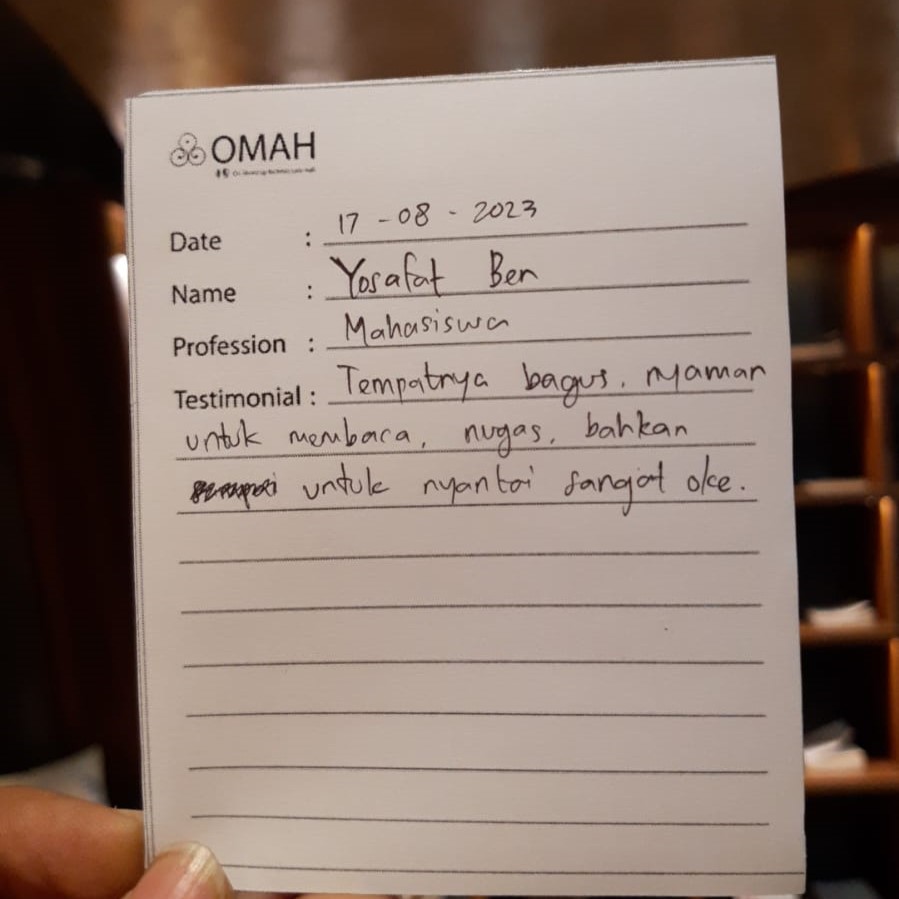 OMAH
Date : 17 - 08 - 2023
Name : Yosafat Ben
Profession : Mahasiswa
Testimonial : Tempatnya bagus, nyaman
untuk membaca, nugas, bahkan
untuk nyantai sangat oke.